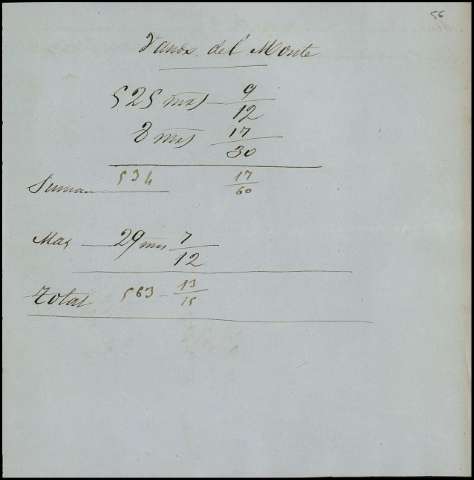 56
del Monte
525 mrs 9/12
8 mrs 17/30
Suman 534 17/60
Mas 29 mrs 7/12
Total 563 13/15